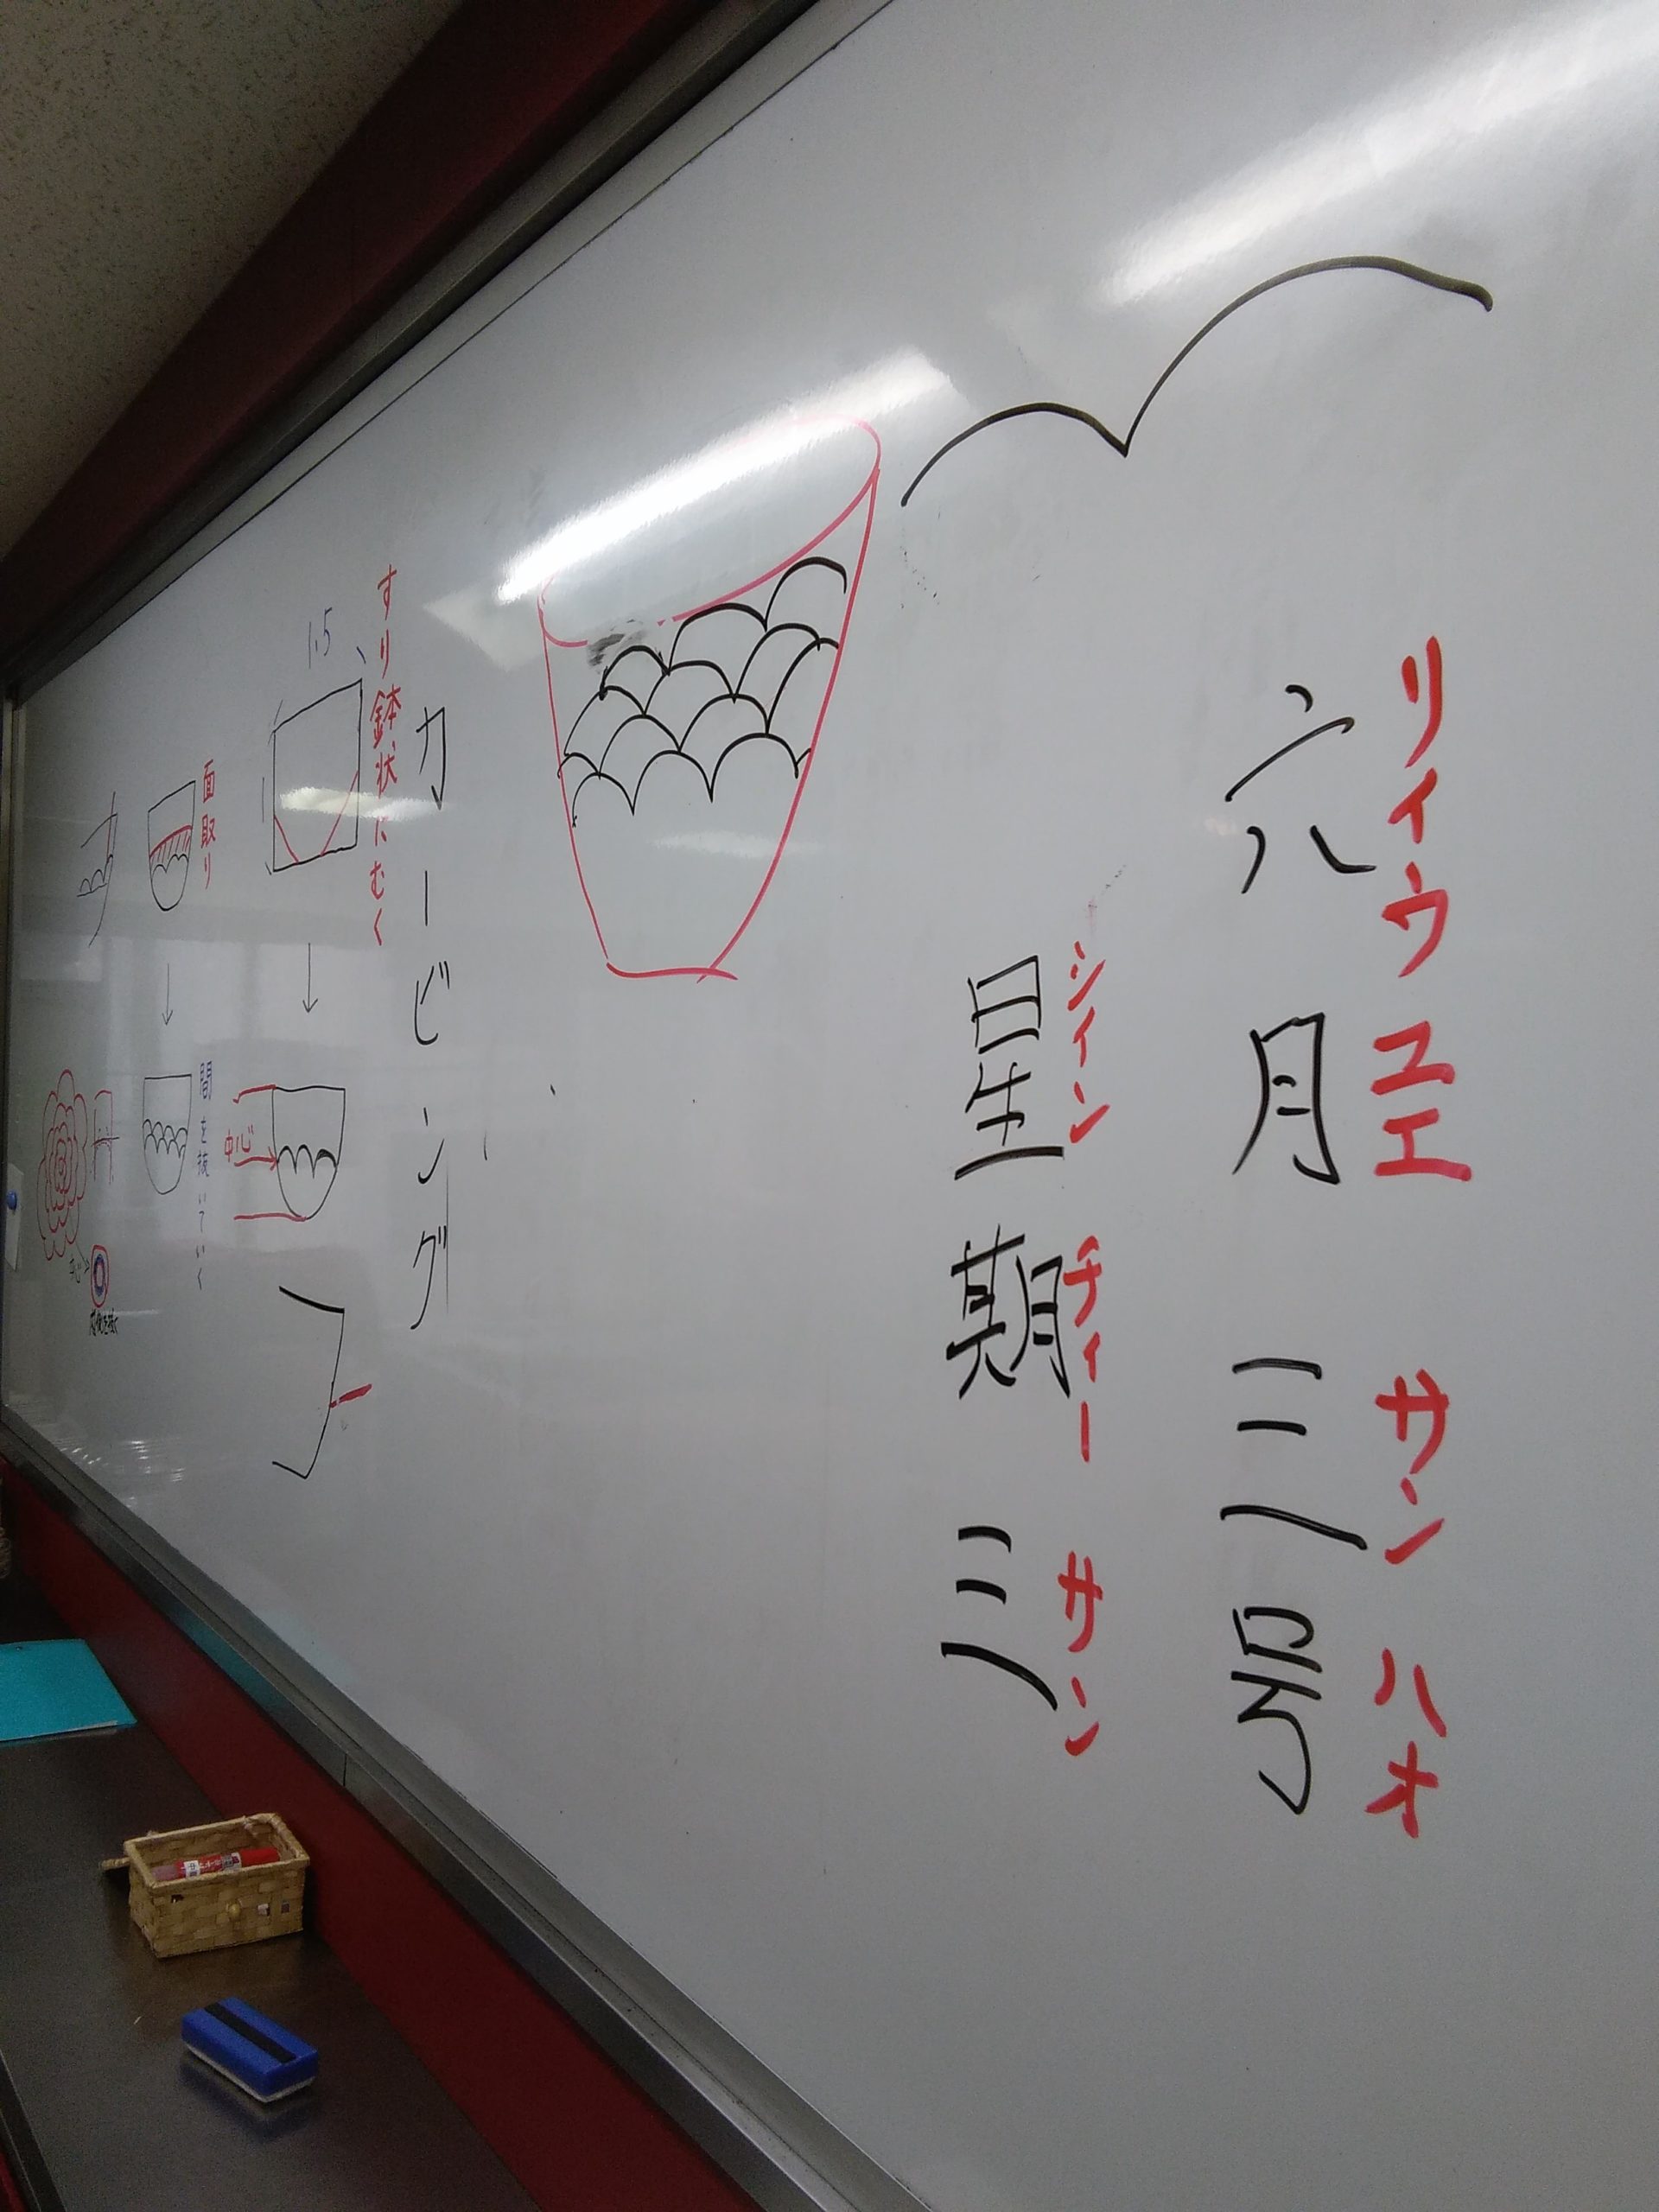 リィウ ユエ サン ハオ
六月三号
シイン チィー サン
星期三
カービング
すり鉢状にむく
1.5
中心
面取り
間を抜いていく